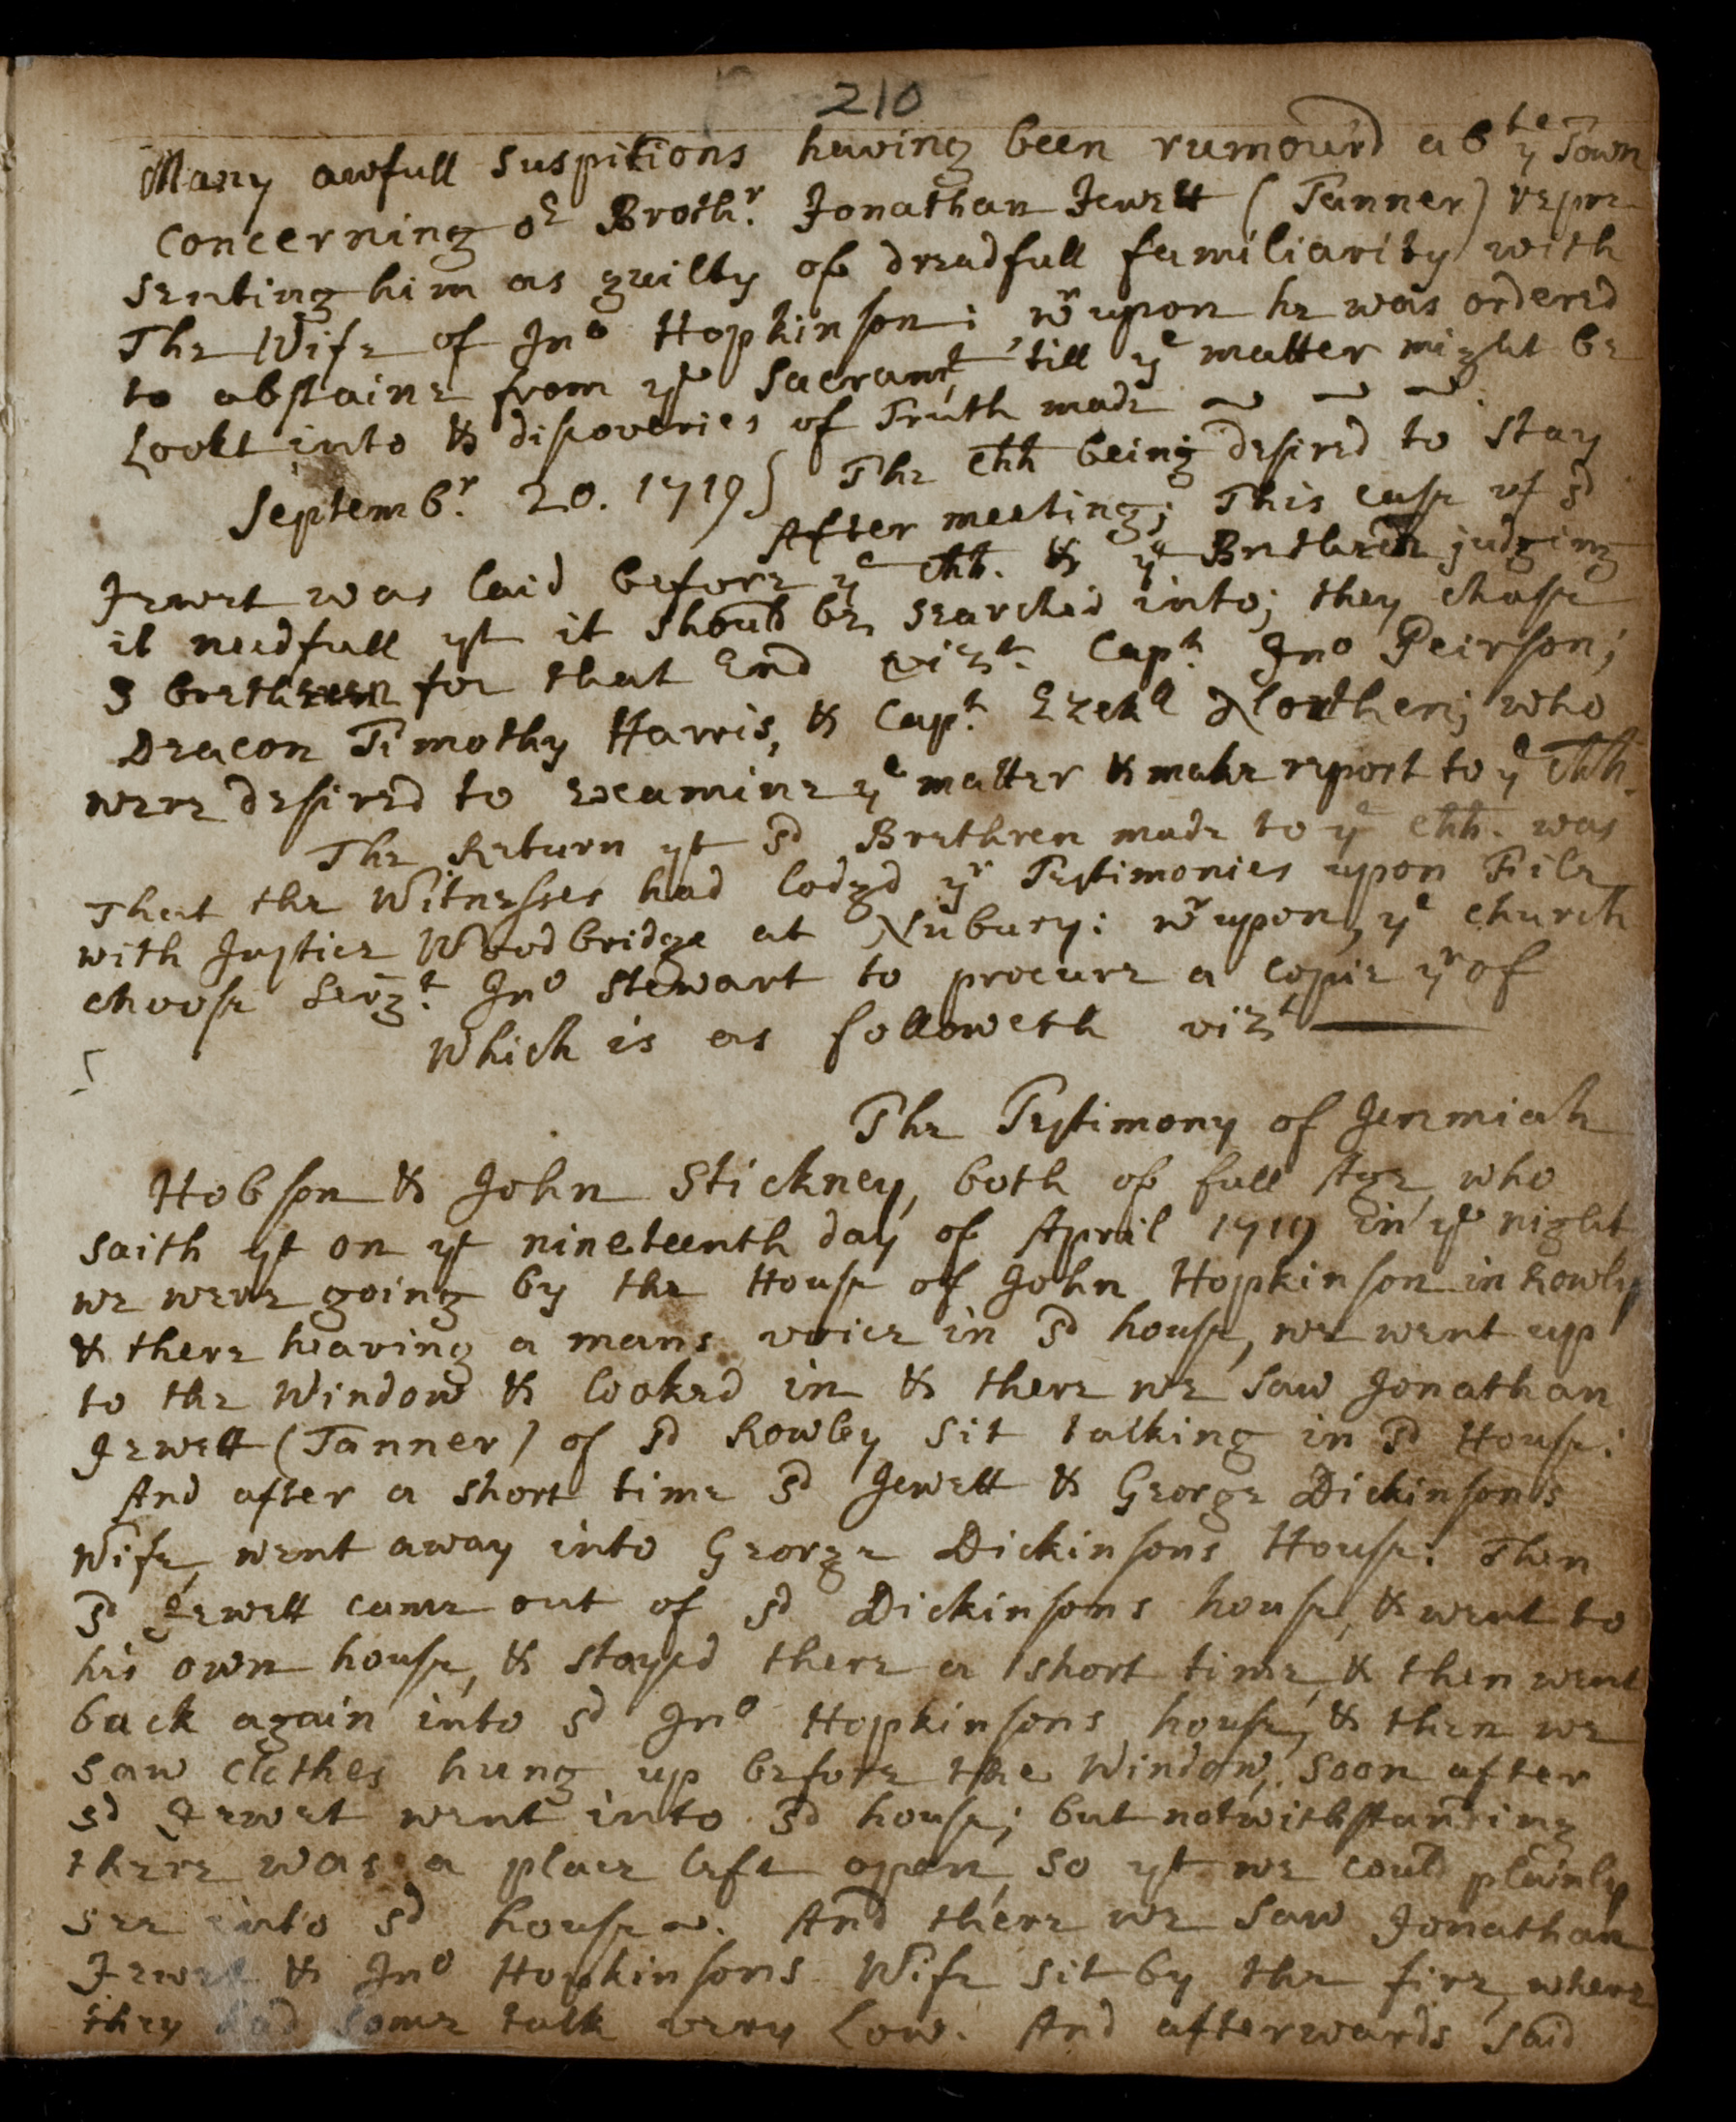 210
Many awfull suspitions having been rumour'd abt ye Town
Concerning or Brothr. Jonathan Jewett (Tanner) repre
senting him as guilty of dreadfull familiarity with
The Wife of Jno Hopkinson: wrupon he was ordered
to abstaine from ye Sacramt, till ye matter might be
Lookt into & discoveries of Truth made
Septembr. 20. 1719} The Chh being desired to stay
After meeting; This case of sd
Jewet was laid before ye Chh. & ye Brethren judging
it needfull yt it should be searched into; they chose
3 brethren for that End vizt. Capt. Jno Peirson;
Deacon Timothy Harris, & Capt. Ezekl Northen; who
were desired to examine ye matter & make report to ye Chh.
The Return yt sd Brethren made to ye Chh. was
That the Witnesses had lodgd yr Testimonies upon File
with Justice Woodbridge at Nubury: wrupon, ye church
choose Serg.t Jno Stewart to procure a copie yrof
Which is as followeth vizt
The Testimony of Jeremiah
Hobson & John Stickney, both of full Age, who
saith yt on ye nineteenth day of April 1719 in ye night
we were going by the House of John Hopkinson in Rowly
& there hearing a mans voice in sd house, we went up
to the Window & looked in & there we saw Jonathan
Jewett (Tanner) of sd Rowley sit talking in sd House:
And after a short time sd Jewett & George Dickinsons
Wife, went away into George Dickinsons House: Then
sd Jewett came out of sd Dickinsons house, & went to
his own house, & stayed there a short time, & then went
back again into sd Jno Hopkinsons house, & then we
saw clothes hung up before the Window, soon after
sd Jewet went into sd house; but notwithstanding
there was a place left open, so yt we could plainly
see into sd house. And there we saw Jonathan
Jewet & Jno Hopkinsons Wife sit by the fire, where
they had some talk very Low. And afterwards said